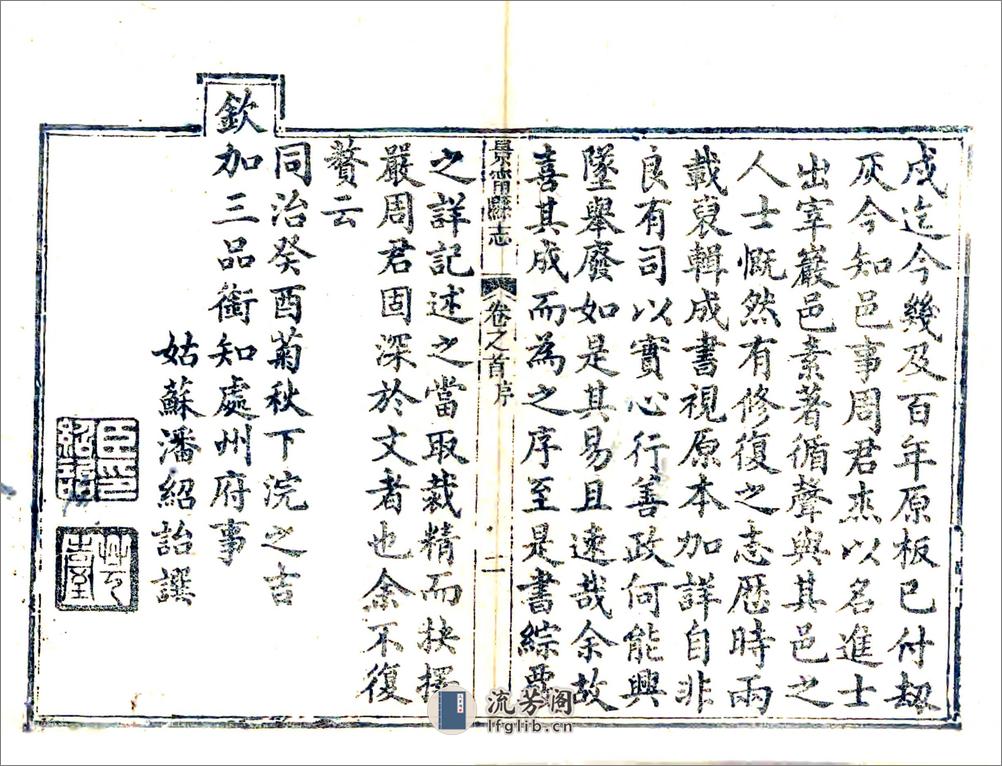 戌迄今幾及百年原板已付刼
灰今知邑事周君杰以名進士
出宰巖邑素著循聲與其邑之
人士慨然有修復之志歷時兩
載裒輯成書視原本加詳自非
良有司以實心行善政何能興
墜舉廢如是其易且速哉余故
喜其成而為之序至是書綜覈
景甯縣志
卷之首序
二
之詳記述之當取裁精而抉擇
嚴周君固深於文者也余不復
贅云
同治癸酉菊秋下浣之吉
欽加三品銜知處州府事
姑蘇潘紹詒譔
臣印紹詒
流芳阁
lfglib.cn